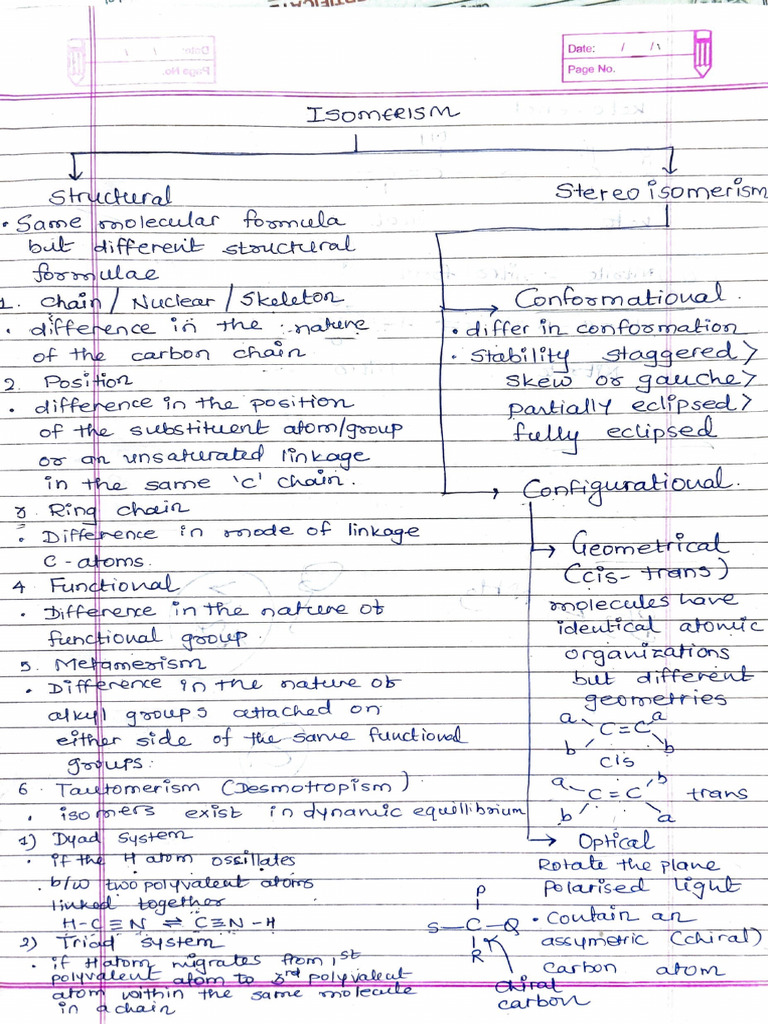 Date: / /
Page No.
ISOMERISM
Structural
• Same molecular formula
but different structural
formulae
1. Chain / Nuclear / Skeleton
• difference in the nature
of the carbon chain
2. Position
• difference in the position
of the substituent atom/group
or an unsaturated linkage
in the same 'c' chain.
3. Ring chain
• Difference in mode of linkage
C-atoms.
4 Functional
• Difference in the nature of
functional group.
5. Metamerism
• Difference in the nature of
alkyl groups attached on
either side of the same functional
groups.
6. Tautomerism (Desmotropism)
• isomers exist in dynamic equillibrium
1) Dyad System
• if the H atom ossillates
b/w two polyvalent atoms
linked together
H-C≡N ⇌ C≡N-H
2) Triad System
• if H atom migrates from 1st
polyvalent atom to 3rd polyvalent
atom within the same molecule
in a chain
Stereoisomerism
Conformational.
• differ in conformation
• Stability staggered >
skew or gauche >
partially eclipsed >
fully eclipsed
Configurational.
Geometrical
(cis-trans)
molecules have
identical atomic
organizations
but different
geometries
a a
C=C
b b
cis
a b
C=C trans
b a
Optical
Rotate the plane
polarised light
• Contain an
assymetric (chiral)
carbon atom
P
S-C-Q
R
Chiral
carbon